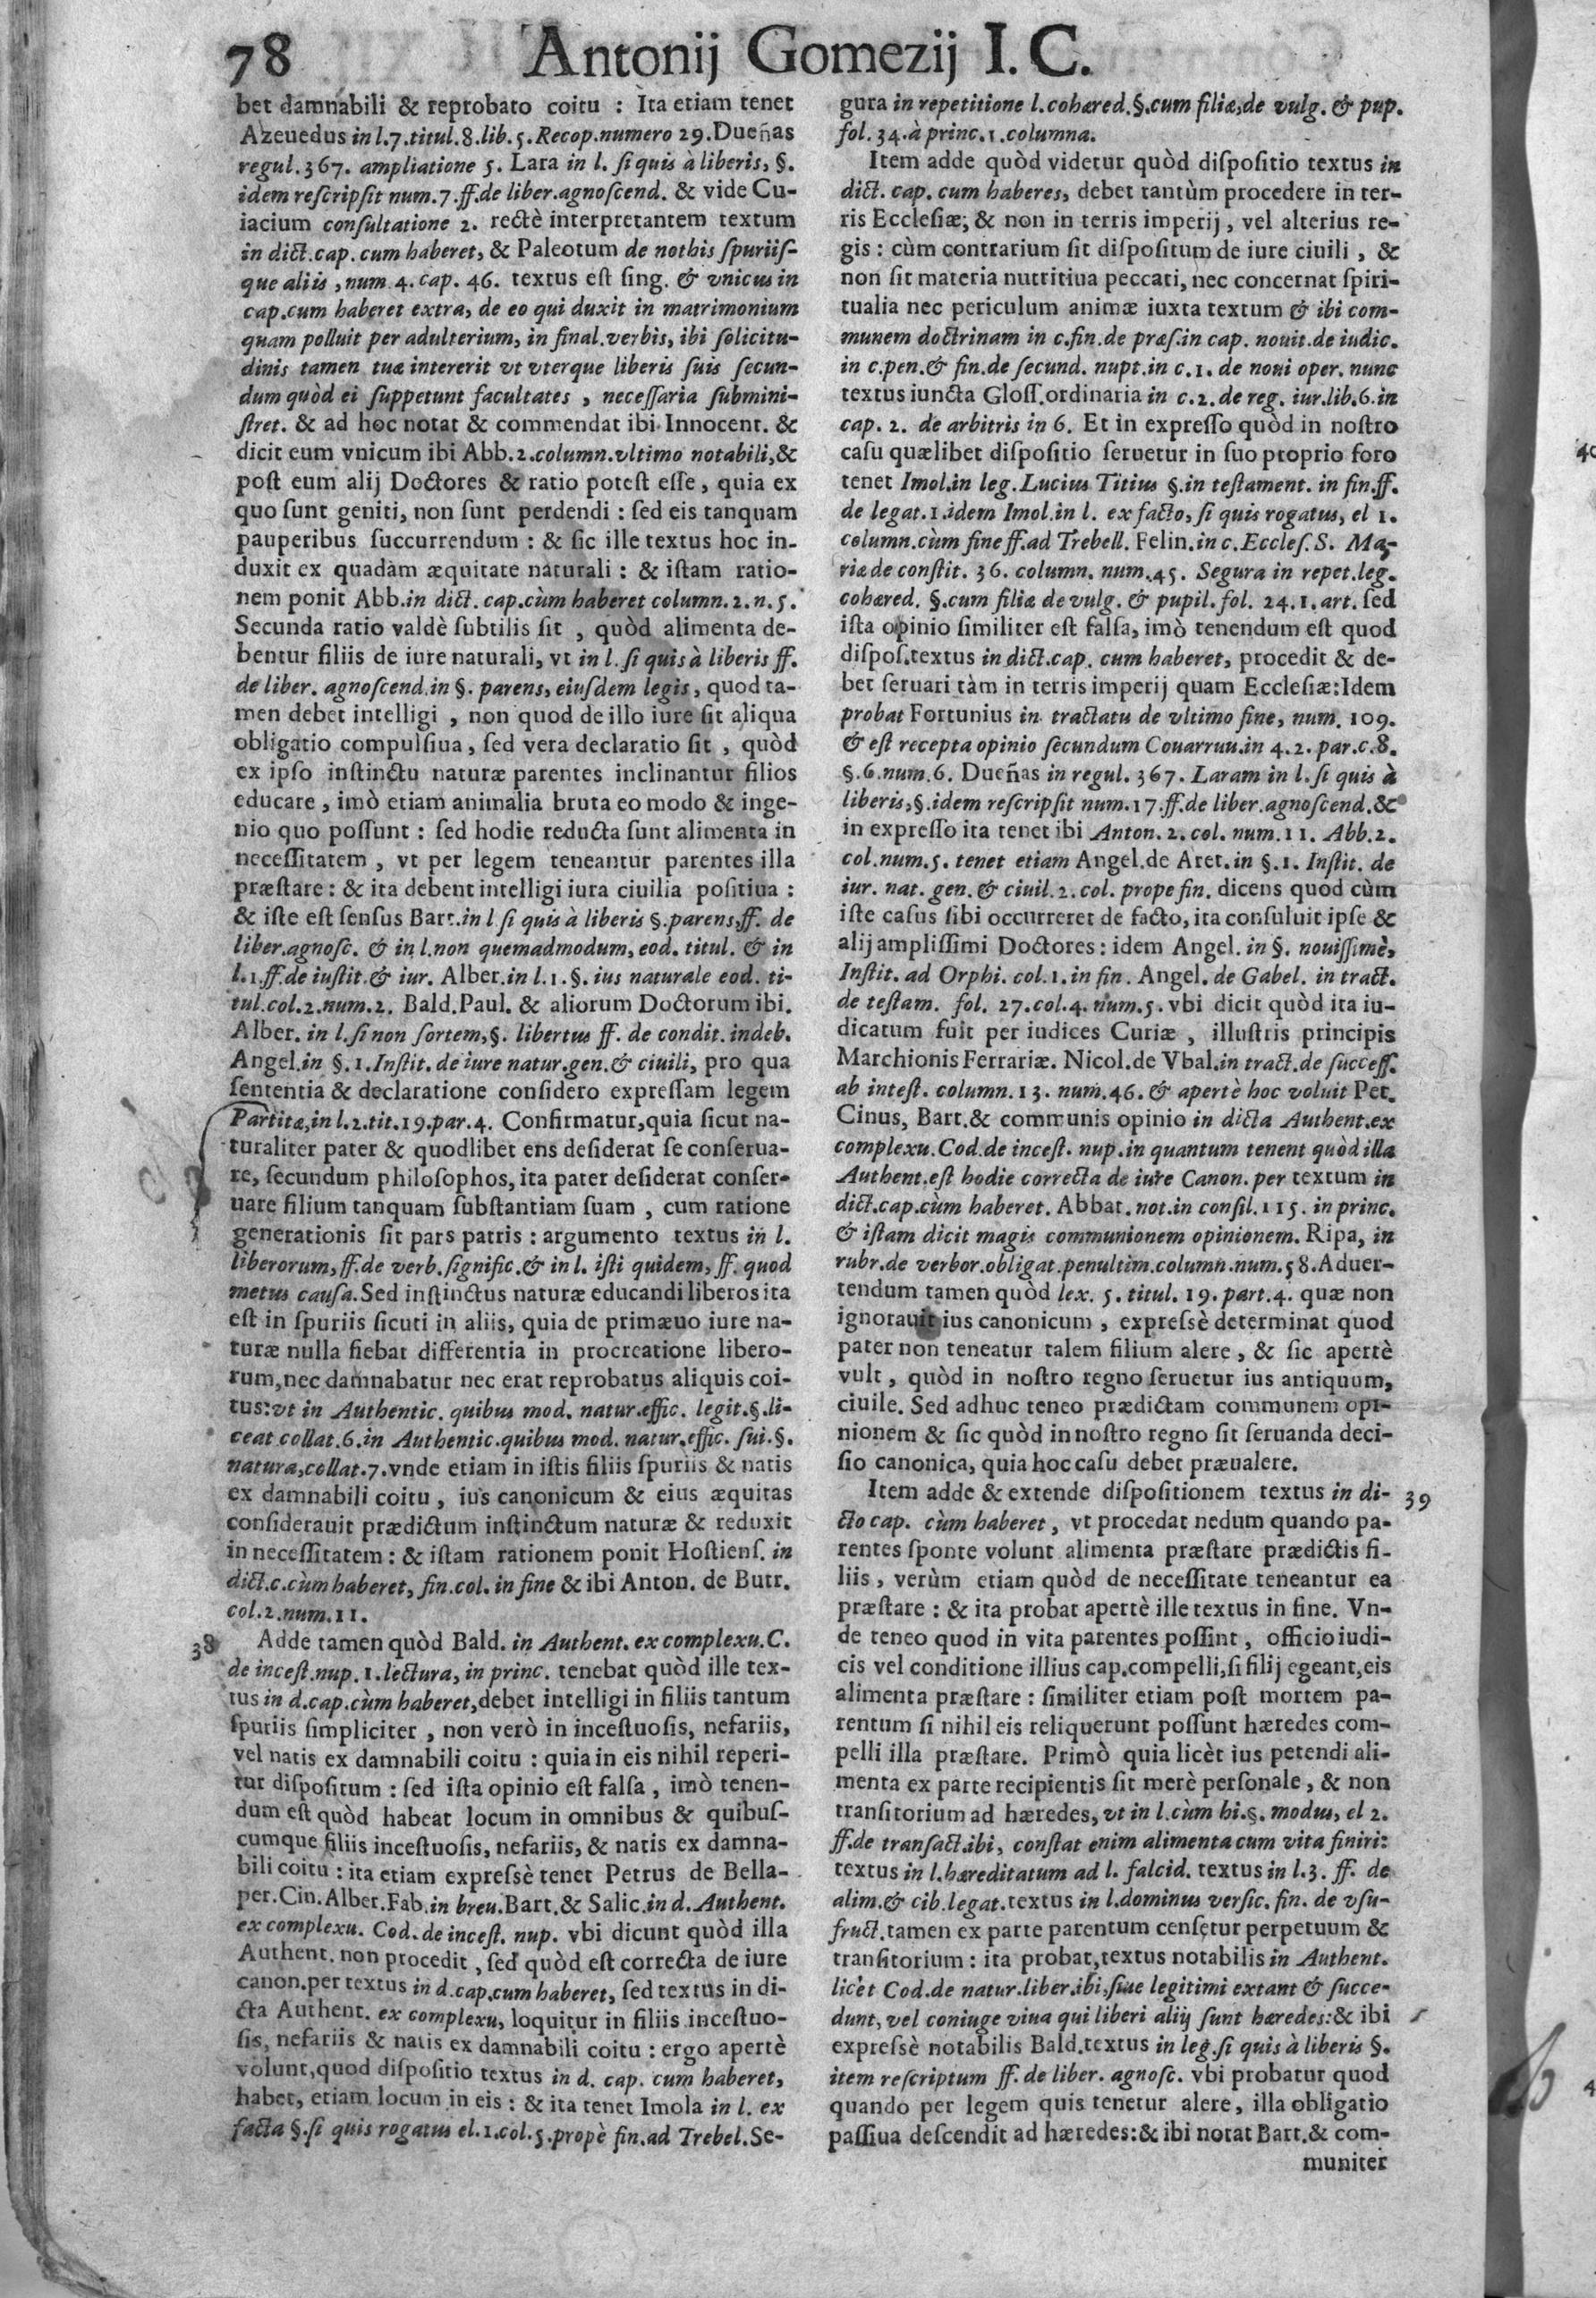 78
Antonij Gomezij I. C.
bet damnabili & reprobato coitu : Ita etiam tenet
Azeuedus in l.7.titul.8.lib.5.Recop.numero 29.Dueñas
regul.367. ampliatione 5. Lara in l. si quis à liberis, §.
idem rescripsit num.7.ff.de liber.agnoscend. & vide Cu-
iacium consultatione 2. rectè interpretantem textum
in dict.cap.cum haberet, & Paleotum de nothis spuriis-
que aliis , num 4. cap. 46. textus est sing. & vnicus in
cap.cum haberet extra, de eo qui duxit in matrimonium
quam polluit per adulterium, in final.verbis, ibi solicitu-
dinis tamen tuæ intererit vt vterque liberis suis secun-
dum quòd ei suppetunt facultates , necessaria submini-
stret. & ad hoc notat & commendat ibi Innocent. &
dicit eum vnicum ibi Abb.2.column.vltimo notabili,&
post eum alij Doctores & ratio potest esse , quia ex
quo sunt geniti, non sunt perdendi : sed eis tanquam
pauperibus succurrendum : & sic ille textus hoc in-
duxit ex quadam æquitate naturali : & istam ratio-
nem ponit Abb.in dict. cap.cùm haberet column.2.n.5.
Secunda ratio valdè subtilis sit , quòd alimenta de-
bentur filiis de iure naturali, vt in l. si quis à liberis ff.
de liber. agnoscend.in §. parens, eiusdem legis, quod ta-
men debet intelligi , non quod de illo iure sit aliqua
obligatio compulsiua, sed vera declaratio sit , quòd
ex ipso instinctu naturæ parentes inclinantur filios
educare , imò etiam animalia bruta eo modo & inge-
nio quo possunt : sed hodie reducta sunt alimenta in
necessitatem , vt per legem teneantur parentes illa
præstare : & ita debent intelligi iura ciuilia positiua :
& iste est sensus Bart.in l si quis à liberis §.parens,ff. de
liber.agnosc. & in l.non quemadmodum, eod. titul. & in
l.1.ff.de iustit.& iur. Alber.in l.1.§. ius naturale eod. ti-
tul.col.2.num.2. Bald.Paul. & aliorum Doctorum ibi.
Alber. in l.si non sortem,§. libertus ff. de condit. indeb.
Angel.in §.1.Instit.de iure natur.gen.& ciuili, pro qua
sententia & declaratione considero expressam legem
Partitæ,in l.2.tit.19.par.4. Confirmatur,quia sicut na-
turaliter pater & quodlibet ens desiderat se conserua-
re, secundum philosophos, ita pater desiderat conser-
uare filium tanquam substantiam suam , cum ratione
generationis sit pars patris : argumento textus in l.
liberorum, ff.de verb.signific.& in l. isti quidem, ff. quod
metus causa.Sed instinctus naturæ educandi liberos ita
est in spuriis sicuti in aliis, quia de primæuo iure na-
turæ nulla fiebat differentia in procreatione libero-
rum,nec damnabatur nec erat reprobatus aliquis coi-
tus:vt in Authentic. quibus mod. natur.effic. legit.§.li-
ceat collat.6.in Authentic.quibus mod. natur.effic. sui.§.
natura,collat.7.vnde etiam in istis filiis spuriis & natis
ex damnabili coitu , ius canonicum & eius æquitas
considerauit prædictum instinctum naturæ & reduxit
in necessitatem : & istam rationem ponit Hostiens. in
dict.c.cùm haberet, fin.col. in fine & ibi Anton. de Butr.
col.2.num.11.
38 Adde tamen quòd Bald. in Authent. ex complexu.C.
de incest.nup. 1.lectura, in princ. tenebat quòd ille tex-
tus in d.cap.cùm haberet,debet intelligi in filiis tantum
spuriis simpliciter , non verò in incestuosis, nefariis,
vel natis ex damnabili coitu : quia in eis nihil reperi-
tur dispositum : sed ista opinio est falsa , imò tenen-
dum est quòd habeat locum in omnibus & quibus-
cumque filiis incestuosis, nefariis, & natis ex damna-
bili coitu : ita etiam expressè tenet Petrus de Bella-
per.Cin.Alber.Fab.in breu.Bart.& Salic.in d. Authent.
ex complexu. Cod.de incest. nup. vbi dicunt quòd illa
Authent. non procedit , sed quòd est correcta de iure
canon.per textus in d.cap.cum haberet, sed textus in di-
cta Authent. ex complexu, loquitur in filiis incestuo-
sis, nefariis & natis ex damnabili coitu : ergo apertè
volunt,quod dispositio textus in d. cap. cum haberet,
habet, etiam locum in eis : & ita tenet Imola in l. ex
facta §.si quis rogatus el.1.col.5.propè fin.ad Trebel.Se-
gura in repetitione l.cohæred.§.cum filiæ,de vulg. & pup.
fol. 34.à princ.1.columna.
Item adde quòd videtur quòd dispositio textus in
dict. cap. cum haberes, debet tantùm procedere in ter-
ris Ecclesiæ; & non in terris imperij , vel alterius re-
gis : cùm contrarium sit dispositum de iure ciuili , &
non sit materia nutritiua peccati, nec concernat spiri-
tualia nec periculum animæ iuxta textum & ibi com-
munem doctrinam in c.fin.de præs.in cap. nouit.de iudic.
in c.pen.& fin.de secund. nupt.in c.1. de noui oper. nunc
textus iuncta Gloss.ordinaria in c.2. de reg. iur.lib.6.in
cap. 2. de arbitris in 6. Et in expresso quòd in nostro
casu quælibet dispositio seruetur in suo proprio foro
tenet Imol.in leg.Lucius Titius §.in testament. in fin.ff.
de legat.1.idem Imol.in l. ex facto, si quis rogatus, el 1.
column.cùm fine ff.ad Trebell. Felin.in c.Eccles.S. Ma-
riæ de constit. 36. column. num.45. Segura in repet.leg.
cohæred. §.cum filiæ de vulg. & pupil.fol. 24.1.art. sed
ista opinio similiter est falsa, imò tenendum est quod
dispos.textus in dict.cap. cum haberet, procedit & de-
bet seruari tàm in terris imperij quam Ecclesiæ:Idem
probat Fortunius in tractatu de vltimo fine, num. 109.
& est recepta opinio secundum Couarruu.in 4.2. par.c.8.
§.6.num.6. Dueñas in regul.367. Laram in l. si quis à
liberis,§.idem rescripsit num.17.ff.de liber.agnoscend.&
in expresso ita tenet ibi Anton. 2. col. num.11. Abb.2.
col.num.5. tenet etiam Angel.de Aret.in §.1. Instit. de
iur. nat. gen. & ciuil.2.col. prope fin. dicens quod cùm
iste casus sibi occurreret de facto, ita consuluit ipse &
alij amplissimi Doctores: idem Angel. in §. nouissimè,
Instit. ad Orphi. col.1.in fin. Angel. de Gabel. in tract.
de testam. fol. 27.col.4.num.5. vbi dicit quòd ita iu-
dicatum fuit per iudices Curiæ , illustris principis
Marchionis Ferrariæ. Nicol.de Vbal.in tract.de success.
ab intest. column.13. num.46. & apertè hoc voluit Pet.
Cinus, Bart.& communis opinio in dicta Authent.ex
complexu.Cod.de incest. nup.in quantum tenent quòd illa
Authent.est hodie correcta de iure Canon. per textum in
dict.cap.cùm haberet. Abbat. not.in consil.115. in princ.
& istam dicit magis communionem opinionem. Ripa, in
rubr.de verbor.obligat.penultim.column.num.58.Aduer-
tendum tamen quòd lex. 5. titul. 19. part.4. quæ non
ignorauit ius canonicum , expressè determinat quod
pater non teneatur talem filium alere , & sic apertè
vult , quòd in nostro regno seruetur ius antiquum,
ciuile. Sed adhuc teneo prædictam communem opi-
nionem & sic quòd in nostro regno sit seruanda deci-
sio canonica, quia hoc casu debet præualere.
Item adde & extende dispositionem textus in di- 39
cto cap. cùm haberet, vt procedat nedum quando pa-
rentes sponte volunt alimenta præstare prædictis fi-
liis , verùm etiam quòd de necessitate teneantur ea
præstare : & ita probat apertè ille textus in fine. Vn-
de teneo quod in vita parentes possint , officio iudi-
cis vel conditione illius cap.compelli,si filij egeant,eis
alimenta præstare : similiter etiam post mortem pa-
rentum si nihil eis reliquerunt possunt hæredes com-
pelli illa præstare. Primò quia licèt ius petendi ali-
menta ex parte recipientis sit merè personale , & non
transitorium ad hæredes, vt in l.cùm hi.§. modus, el 2.
ff.de transact.ibi, constat enim alimenta cum vita finiri:
textus in l.hæreditatum ad l. falcid. textus in l.3. ff. de
alim.& cib.legat.textus in l.dominus versic. fin. de vsu-
fruct.tamen ex parte parentum censetur perpetuum &
transitorium : ita probat,textus notabilis in Authent.
licèt Cod.de natur.liber.ibi,siue legitimi extant & succe-
dunt, vel coniuge viua qui liberi aliij sunt hæredes:& ibi
expressè notabilis Bald.textus in leg.si quis à liberis §.
item rescriptum ff.de liber. agnosc. vbi probatur quod
quando per legem quis tenetur alere, illa obligatio
passiua descendit ad hæredes:& ibi notat Bart.& com-
muniter